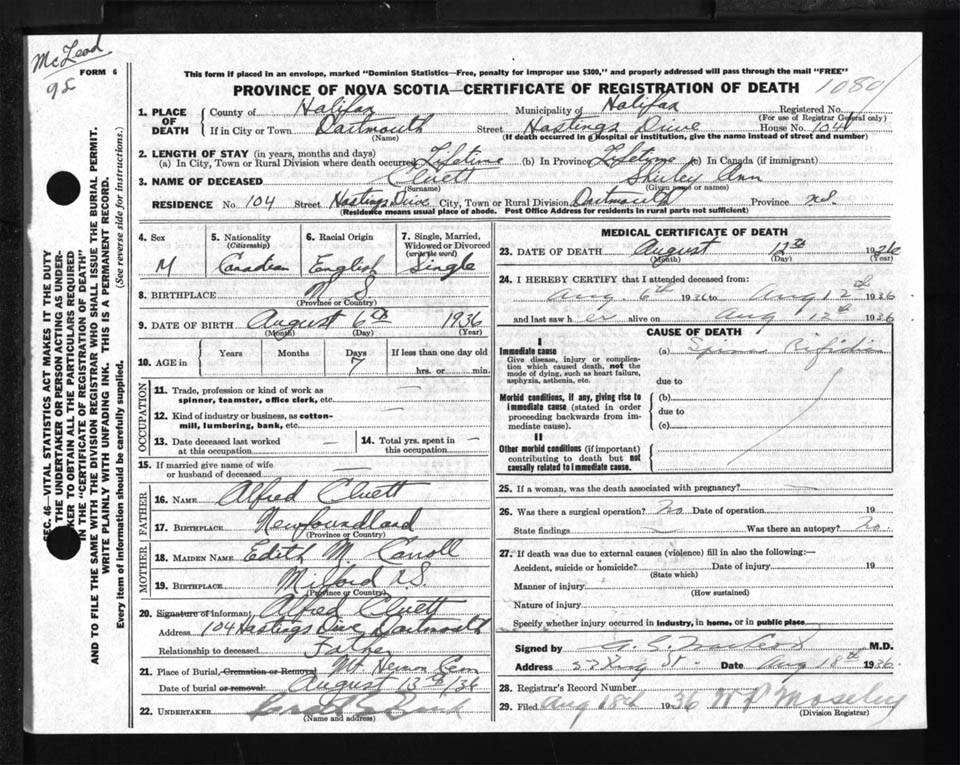 McLeod
FORM 6
98
This form if placed in an envelope, marked "Dominion Statistics—Free, penalty for improper use $300," and properly addressed will pass through the mail "FREE"
PROVINCE OF NOVA SCOTIA—CERTIFICATE OF REGISTRATION OF DEATH
1080
1. PLACE OF DEATH
County of Halifax Municipality of Halifax Registered No.
(For use of Registrar General only)
If in City or Town Dartmouth Street Hastings Drive House No. 104
(Name) (If death occurred in a hospital or institution, give the name instead of street and number)
2. LENGTH OF STAY (in years, months and days)
(a) In City, Town or Rural Division where death occurred Lifetime (b) In Province Lifetime (c) In Canada (if immigrant)
3. NAME OF DECEASED Cluett Shirley Ann
(Surname) (Given name or names)
RESIDENCE No. 104 Street Hastings Drive City, Town or Rural Division Dartmouth Province N.S.
(Residence means usual place of abode. Post Office Address for residents in rural parts not sufficient)
4. Sex M
5. Nationality (Citizenship) Canadian
6. Racial Origin English
7. Single, Married, Widowed or Divorced (write the word) Single
8. BIRTHPLACE N S
(Province or Country)
9. DATE OF BIRTH August 6th 1936
(Month) (Day) (Year)
10. AGE in Years Months Days 7 If less than one day old
hrs. or min.
OCCUPATION
11. Trade, profession or kind of work as spinner, teamster, office clerk, etc. —
12. Kind of industry or business, as cotton-mill, lumbering, bank, etc. —
13. Date deceased last worked at this occupation —
14. Total yrs. spent in this occupation —
15. If married give name of wife or husband of deceased —
FATHER
16. NAME Alfred Cluett
17. BIRTHPLACE Newfoundland
(Province or Country)
MOTHER
18. MAIDEN NAME Edith M. Carroll
19. BIRTHPLACE Milford N.S.
(Province or Country)
20. Signature of informant Alfred Cluett
Address 104 Hastings Dive Dartmouth
Relationship to deceased Father
21. Place of Burial, Cremation or Removal Mt Hermon Cem
Date of burial or removal August 13th/36
22. UNDERTAKER
(Name and address)
MEDICAL CERTIFICATE OF DEATH
23. DATE OF DEATH August 13th 1936
(Month) (Day) (Year)
24. I HEREBY CERTIFY that I attended deceased from:
Aug. 6th 1936 to Aug 12th 1936
and last saw her alive on Aug 12th 1936
CAUSE OF DEATH
I
Immediate cause (a) Spina Bifida
Give disease, injury or complication which caused death, not the mode of dying, such as heart failure, asphyxia, asthenia, etc.
due to
Morbid conditions, if any, giving rise to immediate cause (stated in order proceeding backwards from immediate cause).
(b)
due to
(c)
II
Other morbid conditions (if important) contributing to death but not causally related to immediate cause.
25. If a woman, was the death associated with pregnancy? —
26. Was there a surgical operation? No. Date of operation 19
State findings — Was there an autopsy? No.
27. If death was due to external causes (violence) fill in also the following:—
Accident, suicide or homicide? Date of injury 19
(State which)
Manner of injury
(How sustained)
Nature of injury
Specify whether injury occurred in industry, in home, or in public place
Signed by M.D.
Address 53 King St. Date Aug 18th 1936.
28. Registrar's Record Number
29. Filed Aug 18th 1936 W P Moseley
(Division Registrar)
SEC. 46—VITAL STATISTICS ACT MAKES IT THE DUTY
OF THE UNDERTAKER OR PERSON ACTING AS UNDERTAKER TO OBTAIN ALL THE PARTICULARS REQUIRED
IN THE "CERTIFICATE OF REGISTRATION OF DEATH"
AND TO FILE THE SAME WITH THE DIVISION REGISTRAR WHO SHALL ISSUE THE BURIAL PERMIT.
WRITE PLAINLY WITH UNFADING INK. THIS IS A PERMANENT RECORD.
Every item of information should be carefully supplied. (See reverse side for instructions.)